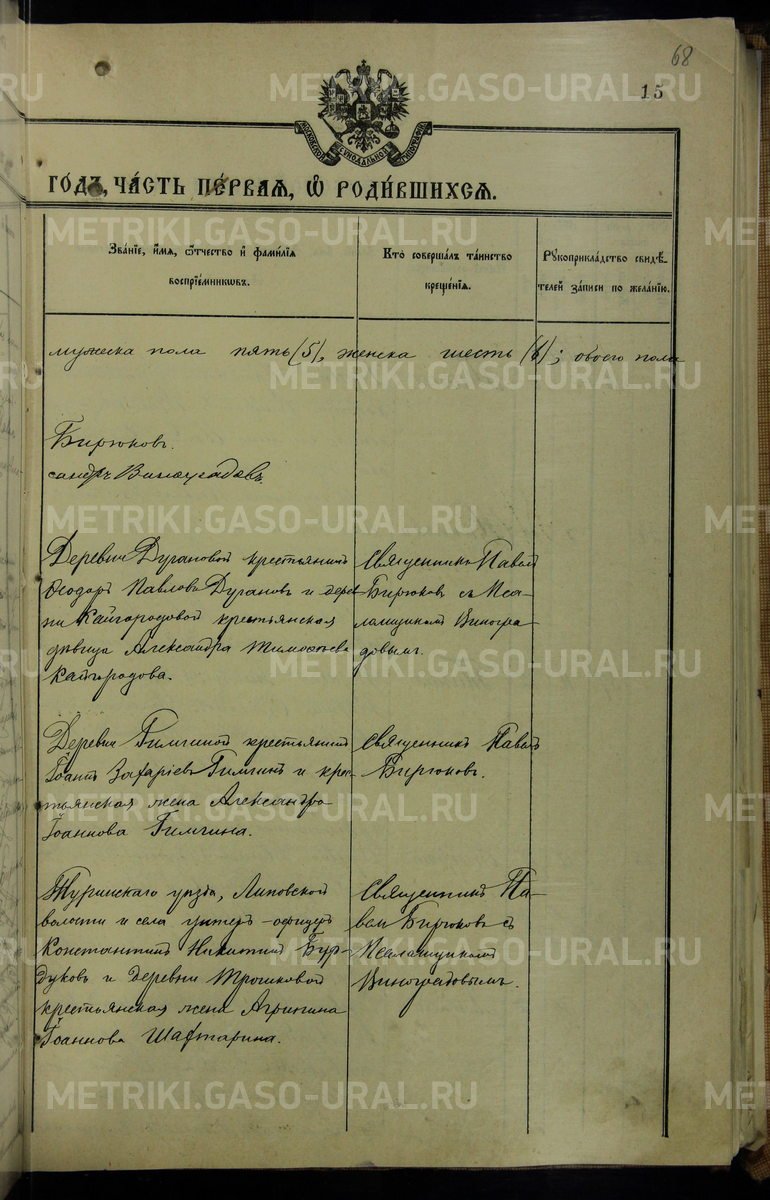 68
15
МОСКОВСКОЙ СѴНОДАЛЬНОЙ ТИПОГРАФІИ
ГО́ДЪ, ЧА́СТЬ ПЕ́РВАЯ, Ѽ РОДИ́ВШИХСЯ.
Зва́нїе, и́мя, ѻ́тчество и҆ фами́лїя
воспрїе́мниковъ.
Кто̀ соверша́лъ та́инство
креще́нїя.
Рꙋкоприкла́дство свидѣ́-
телей за́писи по жела́нїю.
мужеска пола пять (5), женска шесть (6); обоего пола
Бирюковъ.
сандръ Виноградовъ.
Деревни Дугановой крестьянинъ
Ѳеодоръ Павловъ Дугановъ и дерев
ни Кайгородовой крестьянская
дѣвица Александра Тимоѳеева
Кайгородова.
Священникъ Павелъ
Бирюковъ съ Пса-
ломщикомъ Виногра-
довымъ.
Деревни Гилгиной крестьянинъ
Іоаннъ Захаріевъ Гилгинъ и крес-
тьянская жена Александра
Іоаннова Гилгина.
Священникъ Павелъ
Бирюковъ.
Туринскаго уѣзда, Липовской
волости и села унтеръ-офицеръ
Константинъ Никитинъ Бур-
дуковъ и деревни Трошковой
крестьянская жена Агрипина
Іоаннова Шафтарина.
Священникъ Па-
велъ Бирюковъ съ
Псаломщикомъ
Виноградовымъ.
METRIKI.GASO-URAL.RU